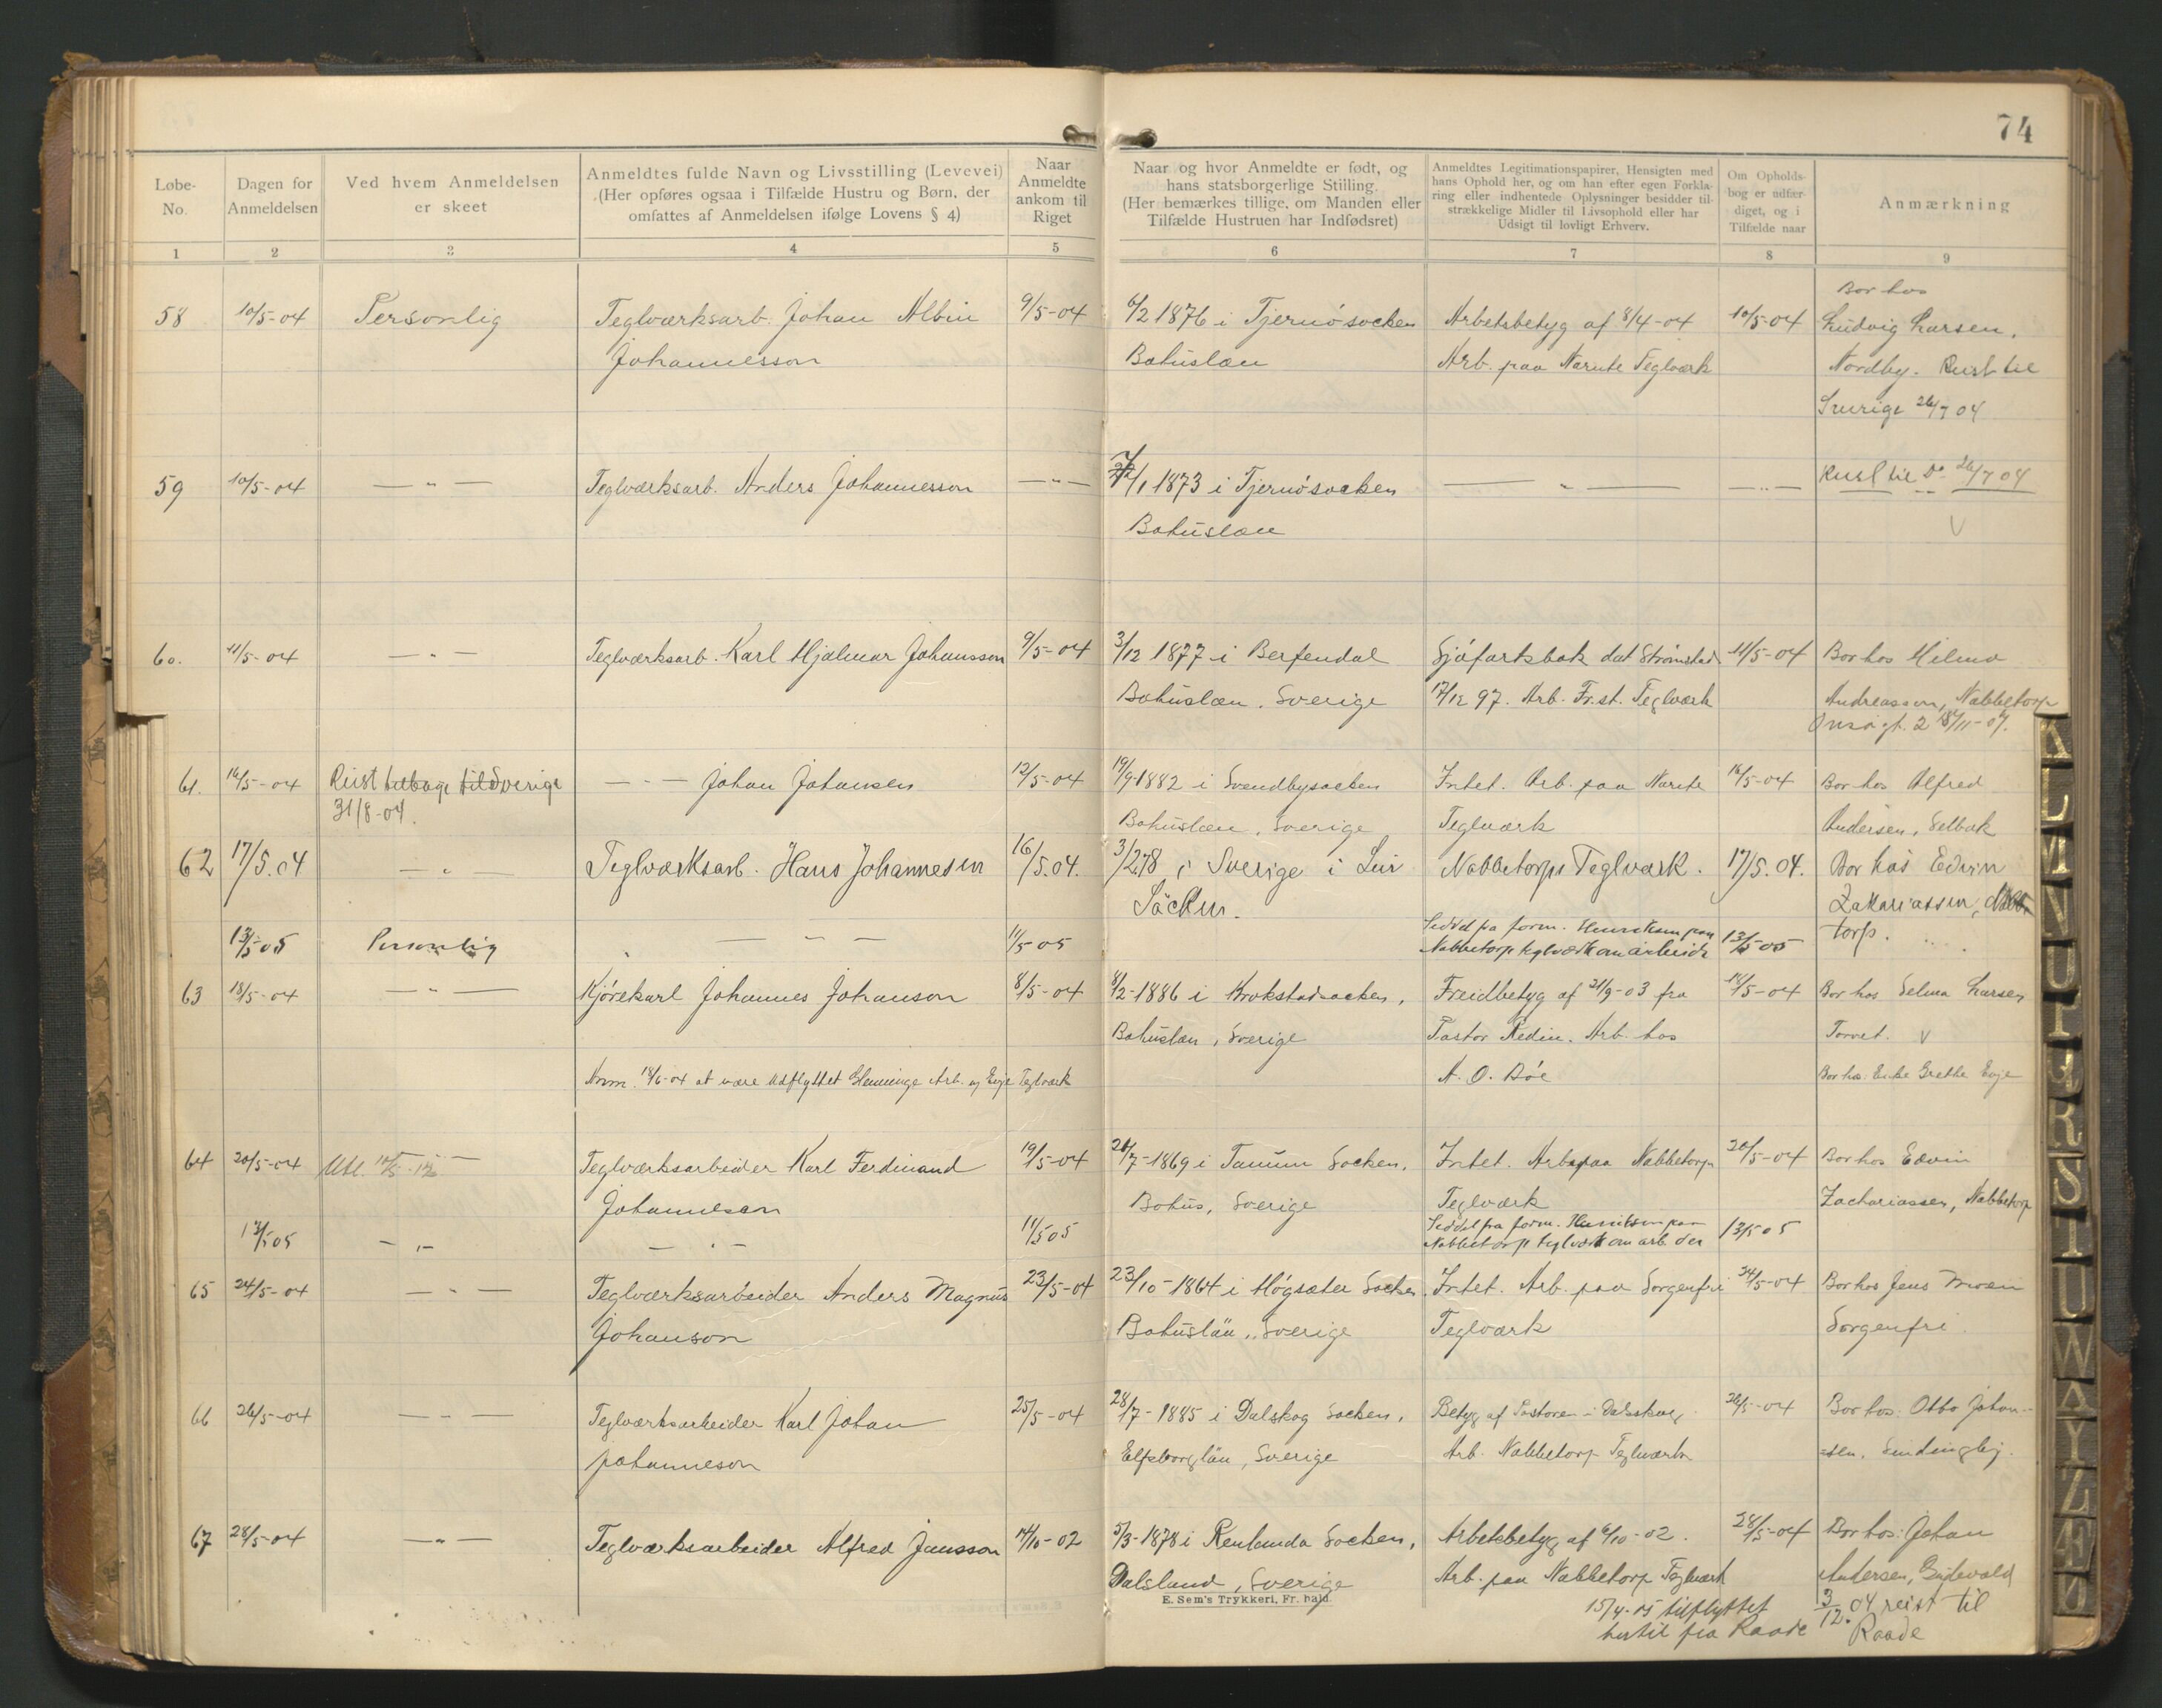 74
Løbe-
No.
Dagen for
Anmeldelsen
Ved hvem Anmeldelsen
er skeet
Anmeldtes fulde Navn og Livsstilling (Levevei)
(Her opføres ogsaa i Tilfælde Hustru og Børn, der
omfattes af Anmeldelsen ifølge Lovens § 4)
Naar
Anmeldte
ankom til
Riget
Naar og hvor Anmeldte er født, og
hans statsborgerlige Stilling.
(Her bemærkes tillige, om Manden eller
Tilfælde Hustruen har Indfødsret)
Anmeldtes Legitimationspapirer, Hensigten med
hans Ophold her, og om han efter egen Forkla-
ring eller indhentede Oplysninger besidder til-
strækkelige Midler til Livsophold eller har
Udsigt til lovligt Erhverv.
Om Opholds-
bog er udfær-
diget, og i
Tilfælde naar
Anmærkning
1 2 3 4 5 6 7 8 9
Bor hos
58 10/5-04 Personlig Teglværksarb. Johan Albin 9/5-04 6/2 1876 i Tjernø socken Arbetsbetyg af 8/4-04 10/5-04 Ludvig Larsen,
Johannesson Bohuslæn Arb. paa Narute Teglværk Nordby. Reist til
Sverige 26/7 04
59 10/5-04 — " — Teglværksarb. Anders Johannesson — " — /1 1873 i Tjernøsocken — " — — " — Reist til Do 26/7 04
Bohuslæn V
60. 11/5-04 — " — Teglværksarb. Karl Hjalmar Johansson 9/5-04 3/12 1877 i Berfendal Sjøfartsbok dat Strömstad 11/5-04 Bor hos Milma
Bohuslæn, Sverige 17/12 97. Arb. Fr.st. Teglværk Andreassen, Nabbetorp
61. 16/5-04 Reist tilbage til Sverige — " — Johan Johansen 12/5-04 19/9-1882 i Svendbysocken Intet. Arb. paa Narute 16/5-04 Bor hos Alfred
31/8-04. Bohuslæn, Sverige Teglværk Andersen, Selbak
62 17/5.04 — " — Teglværksarb. Hans Johannesen 16/5.04. 3/2 78 i Sverige i Lur Nabbetorps Teglværk. 17/5.04. Bor hos Edvin
Säcken. Zakariassen,
13/5 05 Personlig — " — 11/5 05 Seddel fra form. Henriksen paa 13/5-05 torp.
Nabbetorp teglværk om arbeide
63 18/5-04 — " — Kjørekarl Johannes Johanson 8/5-04 8/2-1886 i Krokstadsocken, Freidbetyg af 21/9-03 fra 18/5-04 Bor hos Selma Larsen
Bohuslæn, Sverige Pastor Redin. Arb. hos Torvet. V
Anm. 18/6-04 at være udflyttet Glemminge Arb. ved Evje Teglværk A. O. Bøe Bor hos Enke Grethe Evje
64 20/5-04 — Teglværksarbeider Karl Ferdinand 19/5-04 26/7-1869 i Tanum Socken, Intet. Arb. paa Nabbetorp 20/5-04 Bor hos Edvin
Johannesen Bohus, Sverige Teglværk Zachariassen, Nabbetorp
13/5 05 — " — — " — 11/5 05 Seddel fra form. Henriksen paa 13/5 05
Nabbetorp teglværk om arb. der
65 24/5-04 — " — Teglværksarbeider Anders Magnus 23/5-04 23/10-1864 i Högsäter Socken Intet. Arb. paa Sorgenfri 24/5-04 Bor hos Jens Moen
Johanson Bohuslän, Sverige Teglværk Sorgenfri
66 26/5-04 — " — Teglværksarbeider Karl Johan 25/5-04 28/7-1885 i Dalskog Socken, Betyg af Pastoren i Dalskog. 26/5-04 Bor hos: Otto Johan-
Johanneson Elfsborglän, Sverige Arb. Nabbetorp Teglværk =sen,
67 28/5-04 — " — Teglværksarbeider Alfred Jansson 14/10-02 5/3-1878 i Socken, Arbetsbetyg af 6/10-02. 28/5-04 Bor hos: Johan
Dalsland, Sverige Arb. paa Nabbetorp Teglværk Andersen, Gudevold
E. Sem's Trykkeri, Fr. hald.
15/4-05 tilflyttet 3/12. 04 reist til
hertil fra Raade Raade
K L M N O P Q R S T U W X Y Z Æ Ø